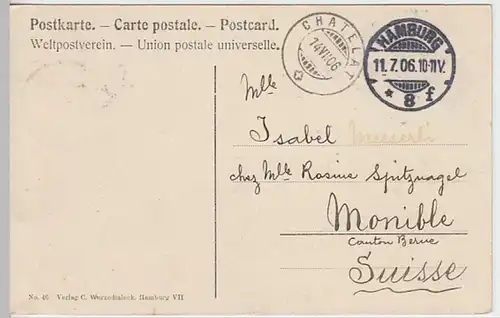 Postkarte. — Carte postale. — Postcard.
Weltpostverein. — Union postale universelle.
CHATELAT
14 VII 06
HAMBURG
11.7.06.10-11V.
* 8 f
Mlle
Isabel
chez Mlle Rosine Spitznagel
Monible
Canton Berne
Suisse
No. 46 Verlag C. Worzedialeck, Hamburg VII